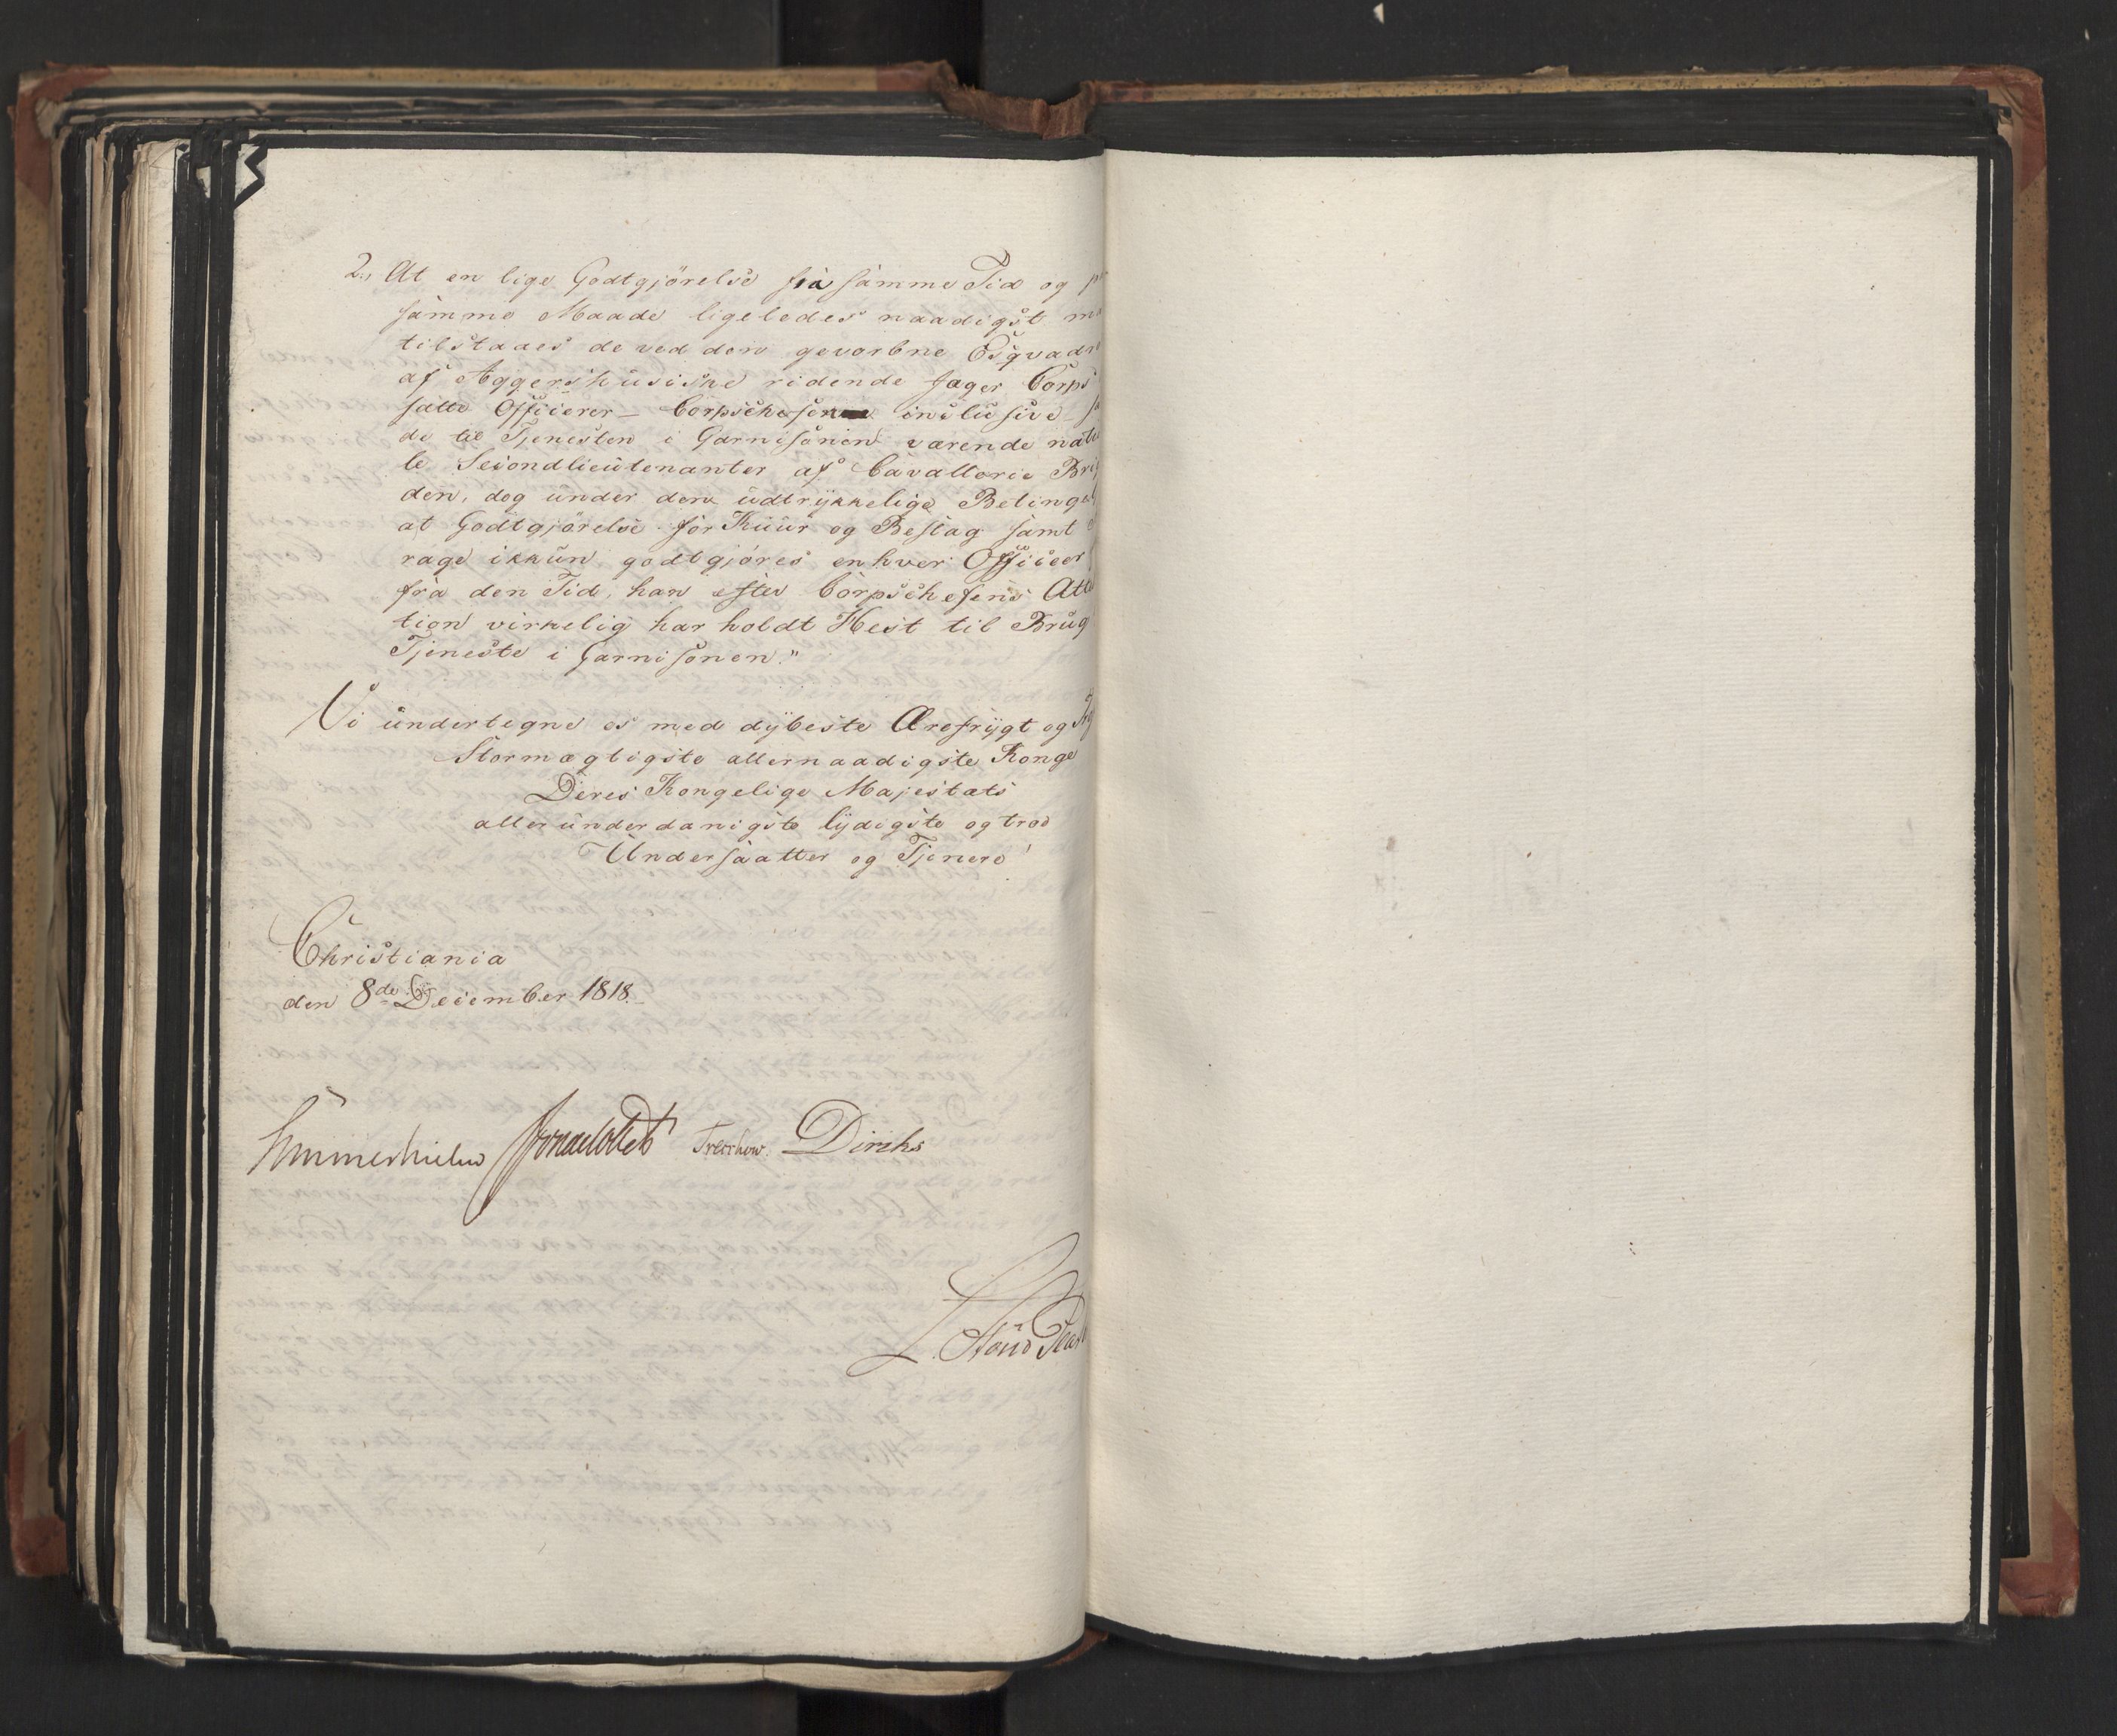 2., At en lige Godtgjörelse fra samme Tid og
samme Maade ligeledes naadigst
tilstaaes de ved den gevorbne Esqvadr
af Aggershusiske ridende Jæger Corps
satte Officierer – Corpschefen inclusive –
de til Tjenesten i Garnisonen værende
le Secondlieutenanter af Cavallerie Brig
den, dog under den udtrykkelige Beting
at Godtgjörelse for Kuur og Beslag samt
rage ikkun godtgjöres enhver Officier
fra den Tid, han efter Corpschefens Atte
tion virkelig har holdt Hest til Brug
Tjeneste i Garnisonen."
Vi undertegne os med dybeste Ærefrygt og
Stormægtigste allernaadigste Konge
Deres Kongelige Majestæts
allerunderdanigste lydigste og troe
Undersaatter og Tjenere
Christiania
den 8de December 1818.
Sommerhielm Treschow Diriks